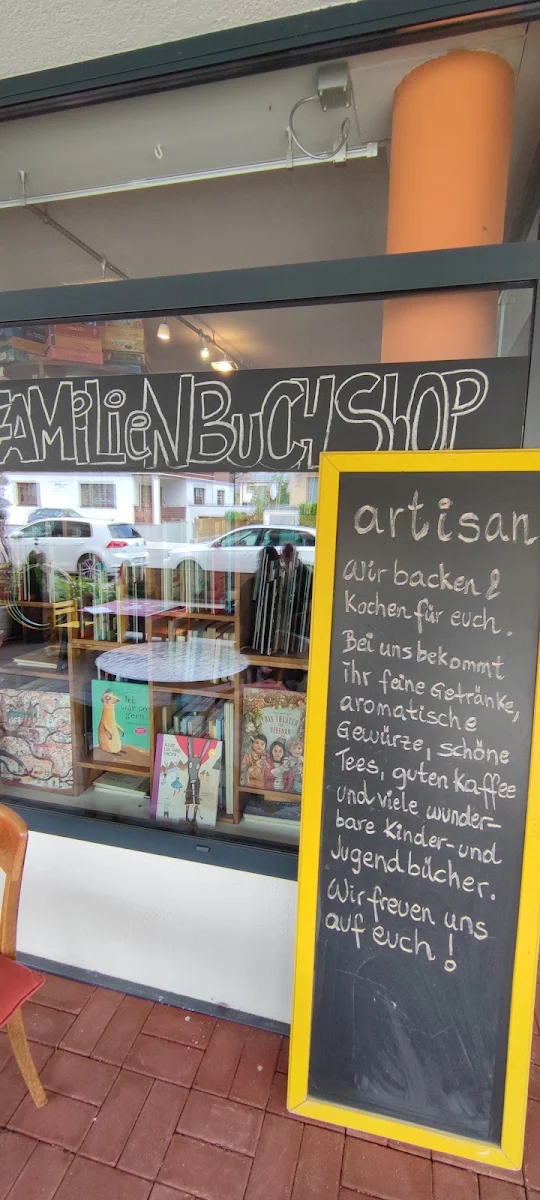 FAMiLieNBuCHSHOP
artisan
Wir backen &
Kochen für euch.
Bei uns bekommt
ihr feine Getränke,
aromatische
Gewürze, schöne
Tees, guten Kaffee
und viele wunder-
bare Kinder- und
Jugendbücher.
Wir freuen uns
auf euch!